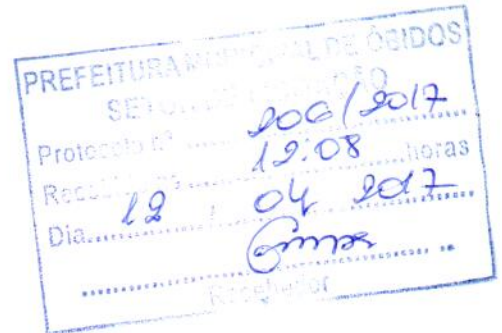 PREFEITURA MUNICIPAL DE ÓBIDOS
SETOR DE
Protocolo nº 206/2017
12:08 horas
Dia 12 / 04 2017
Recebedor